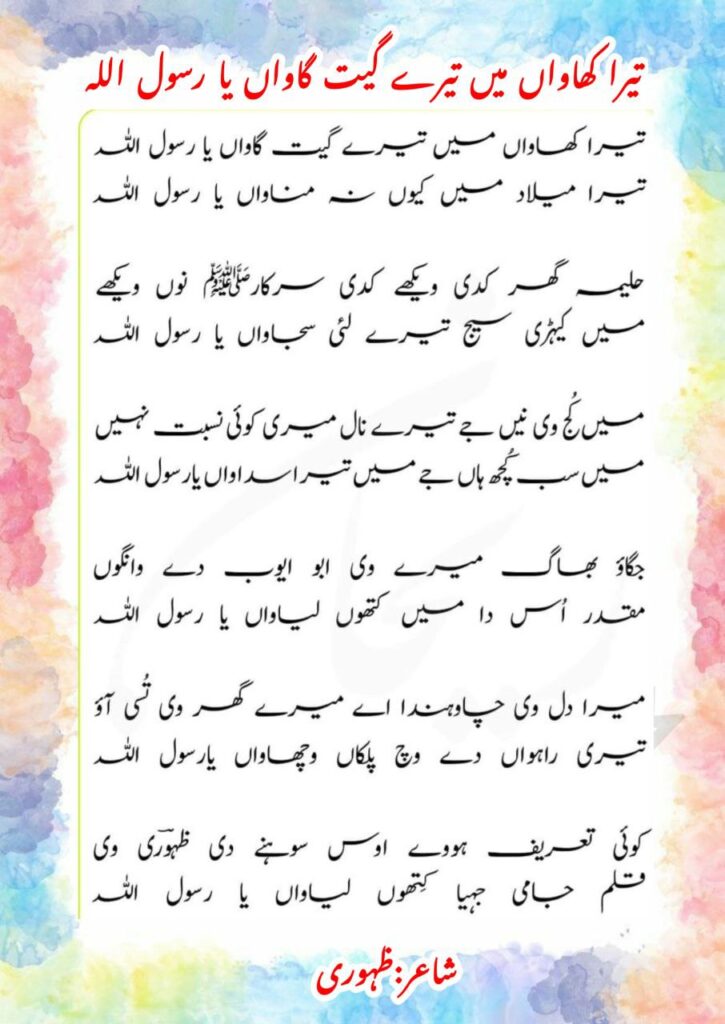 تیرا کھاواں میں تیرے گیت گاواں یا رسول اللہ
تیرا کھاواں میں تیرے گیت گاواں یا رسول اللہ
تیرا میلاد میں کیوں نہ مناواں یا رسول اللہ
حلیمہ گھر کدی ویکھے کدی سرکارﷺ نوں ویکھے
میں کیہڑی سیج تیرے لئی سجاواں یا رسول اللہ
میں کُج وی نیں جے تیرے نال میری کوئی نسبت نہیں
میں سب کُچھ ہاں جے میں تیرا سداواں یارسول اللہ
جگاؤ بھاگ میرے وی ابو ایوب دے وانگوں
مقدر اُس دا میں کتھوں لیاواں یا رسول اللہ
میرا دل وی چاوہندا اے میرے گھر وی تُسی آؤ
تیری راہواں دے وچ پلکاں وچھاواں یارسول اللہ
کوئی تعریف ہووے اوس سوہنے دی ظہوریؔ وی
قلم جامی جہیا کِتھوں لیاواں یا رسول اللہ
شاعر:ظہوری